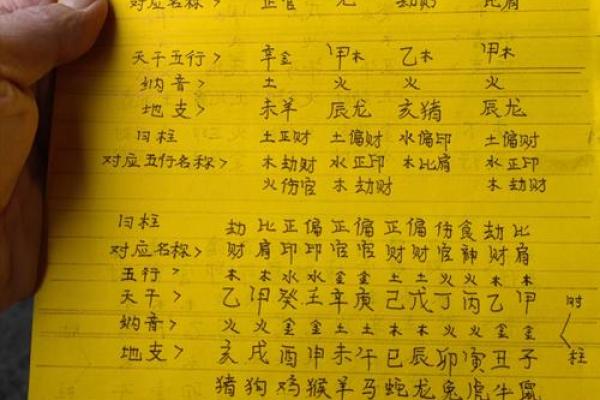 对应名称> 正官 劫财 比肩
天干五行> 辛金 甲木 乙木 甲木
纳音> 土 火 火 火
地支> 未羊 辰龙 亥猪 辰龙
日柱 土正财 土偏财 水偏印 土偏财
对应五行名称> 木劫财 水正印 木比肩 水正印
火伤官 木劫财 木劫财
日柱 劫比正偏正偏正偏伤食劫比
对应名称> 财肩印印官官财财官神财肩
五行> 木木水水金金土土火火木木
天干> 乙甲癸壬辛庚己戊丁丙乙甲 时
纳音> 火火金金土土木木火火金金
地支> 亥戌酉申未午巳辰卯寅丑子 柱
猪狗鸡猴羊马蛇龙兔虎牛鼠